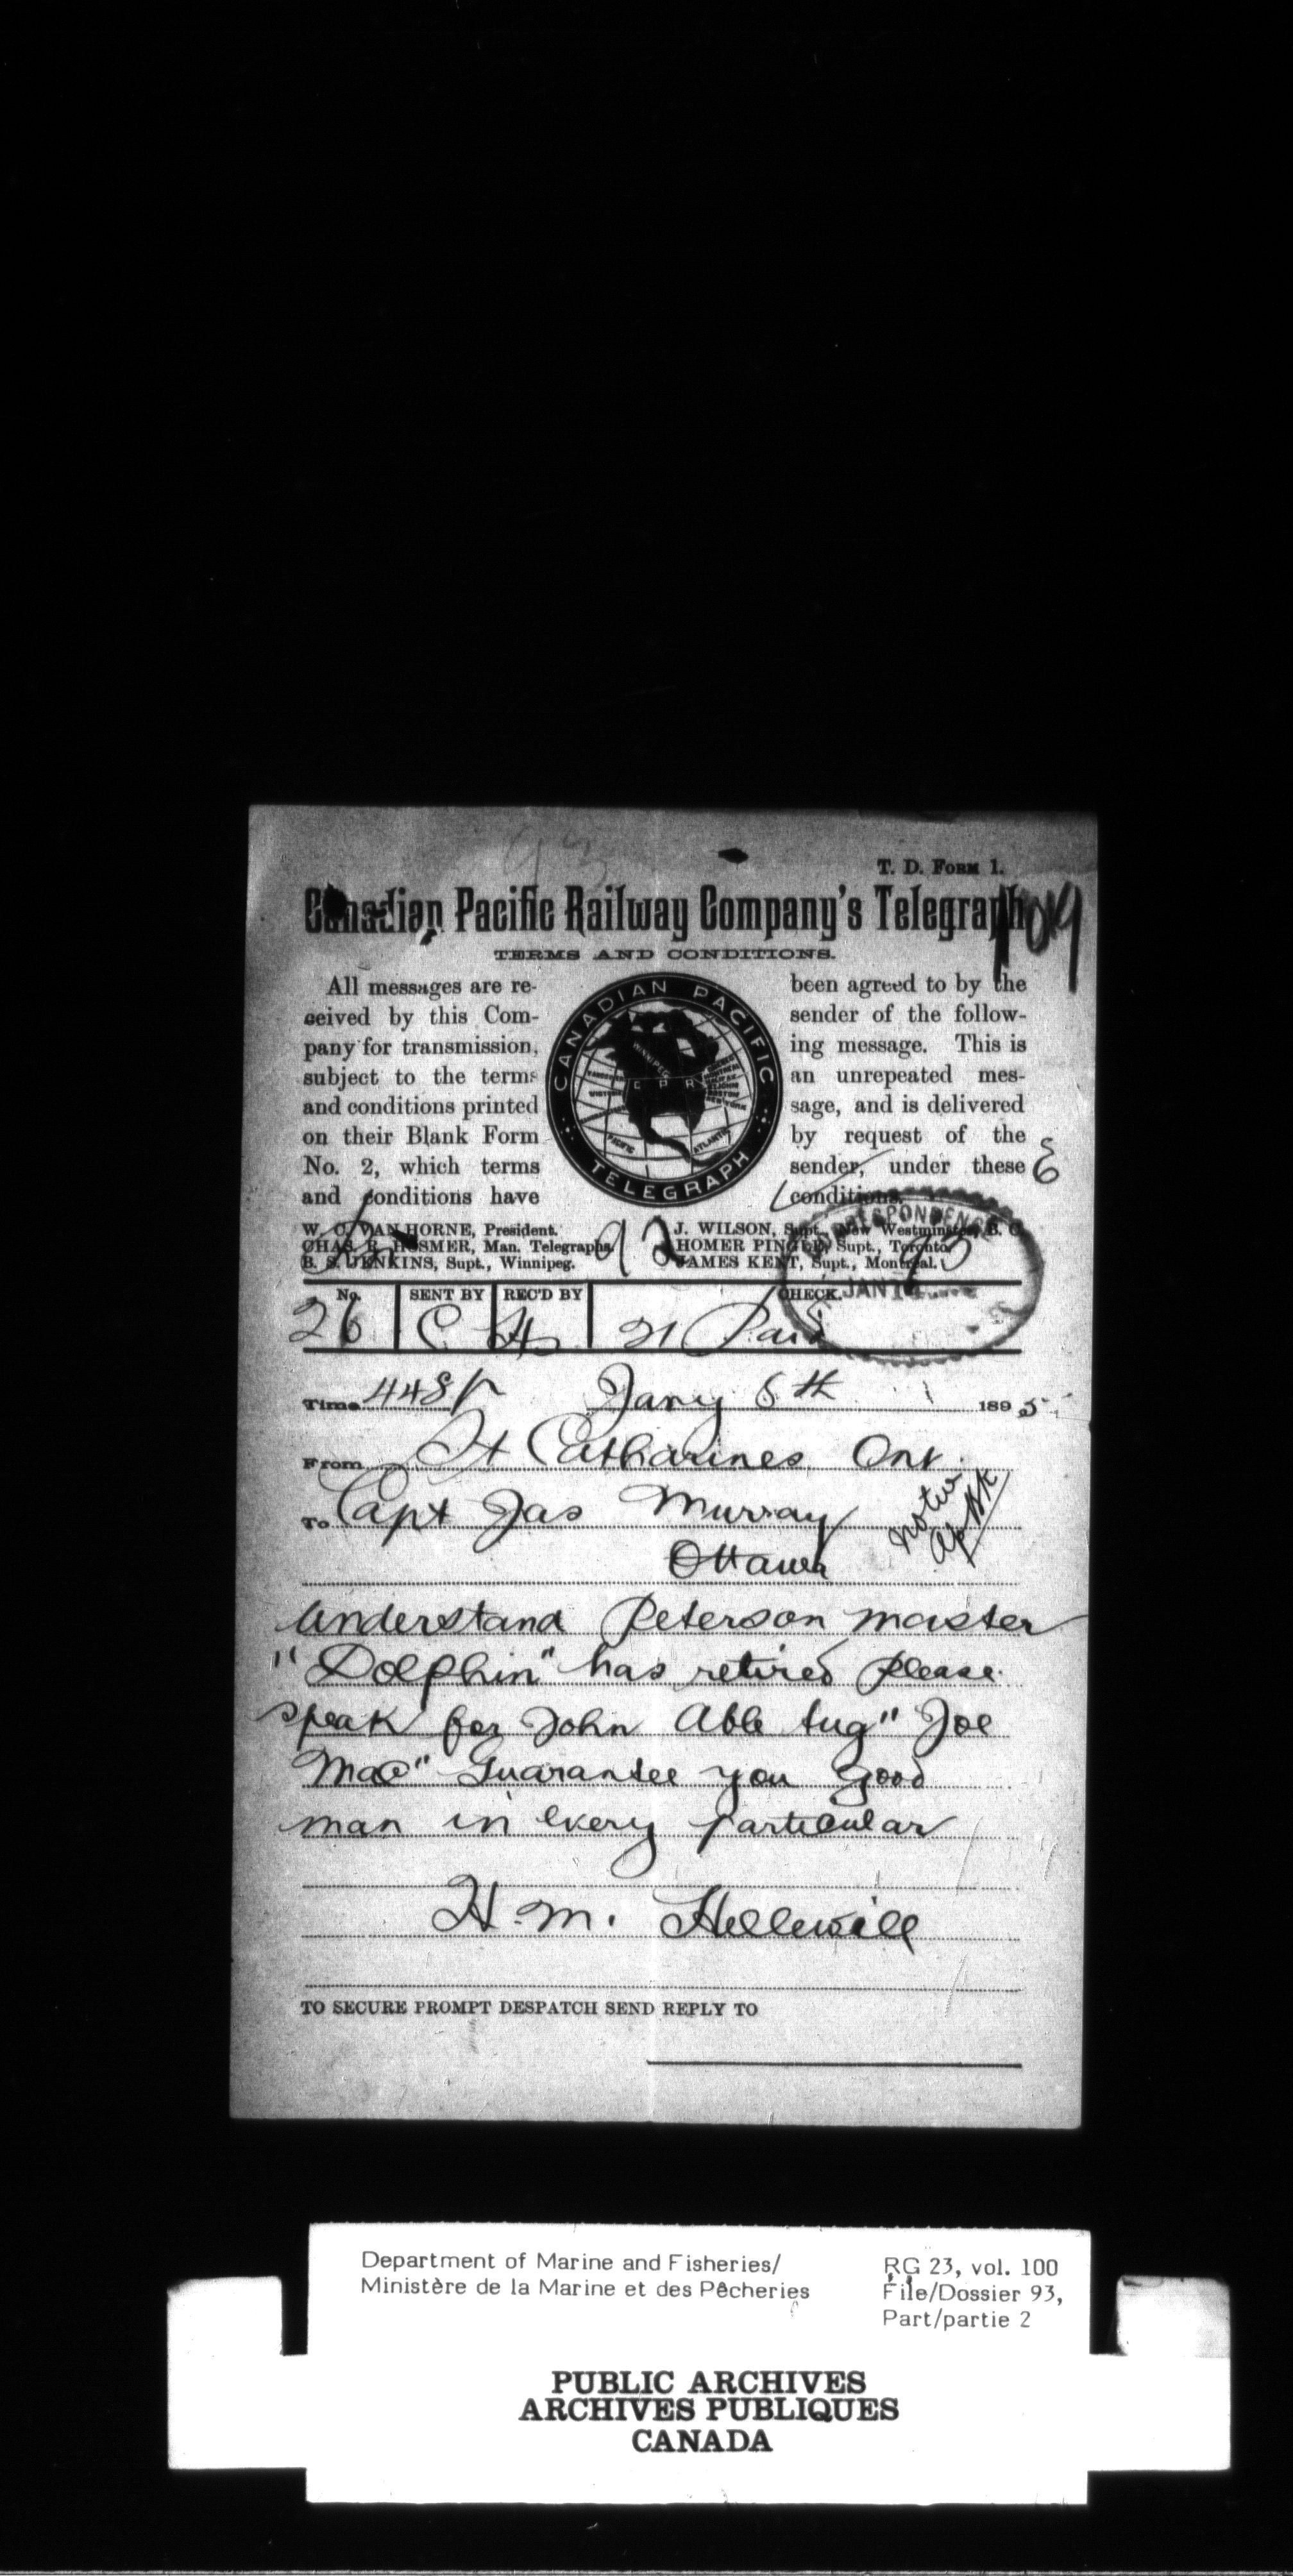 93
T. D. FORM 1.
Canadian Pacific Railway Company's Telegraph
109
TERMS AND CONDITIONS.
All messages are re-
ceived by this Com-
pany for transmission,
subject to the terms
and conditions printed
on their Blank Form
No. 2, which terms
and conditions have
CANADIAN PACIFIC
TELEGRAPH
WINNIPEG
C P R
PACIFIC
ATLANTIC
been agreed to by the
sender of the follow-
ing message. This is
an unrepeated mes-
sage, and is delivered
by request of the
sender, under these
conditions.
W. C. VAN HORNE, President.
CHAS. R. HOSMER, Man. Telegraphs.
B. S. JENKINS, Supt., Winnipeg.
92
J. WILSON, Supt., New Westminster, B. C.
HOMER PINGLE, Supt., Toronto.
JAMES KENT, Supt., Montreal.
93
CORRESPONDENCE
JAN 14
No. SENT BY REC'D BY CHECK.
26 C H 21 Paid
Time 448 P Jany 6th 1895
From St Catharines Ont.
To Capt Jas Murray
Ottawa
Understand Peterson master
"Dolphin" has retired please
speak for John Able tug "Joe
Mac" Guarantee you good
man in every particular
H. M. Hellewill
TO SECURE PROMPT DESPATCH SEND REPLY TO
Department of Marine and Fisheries/
Ministère de la Marine et des Pêcheries
RG 23, vol. 100
File/Dossier 93,
Part/partie 2
PUBLIC ARCHIVES
ARCHIVES PUBLIQUES
CANADA